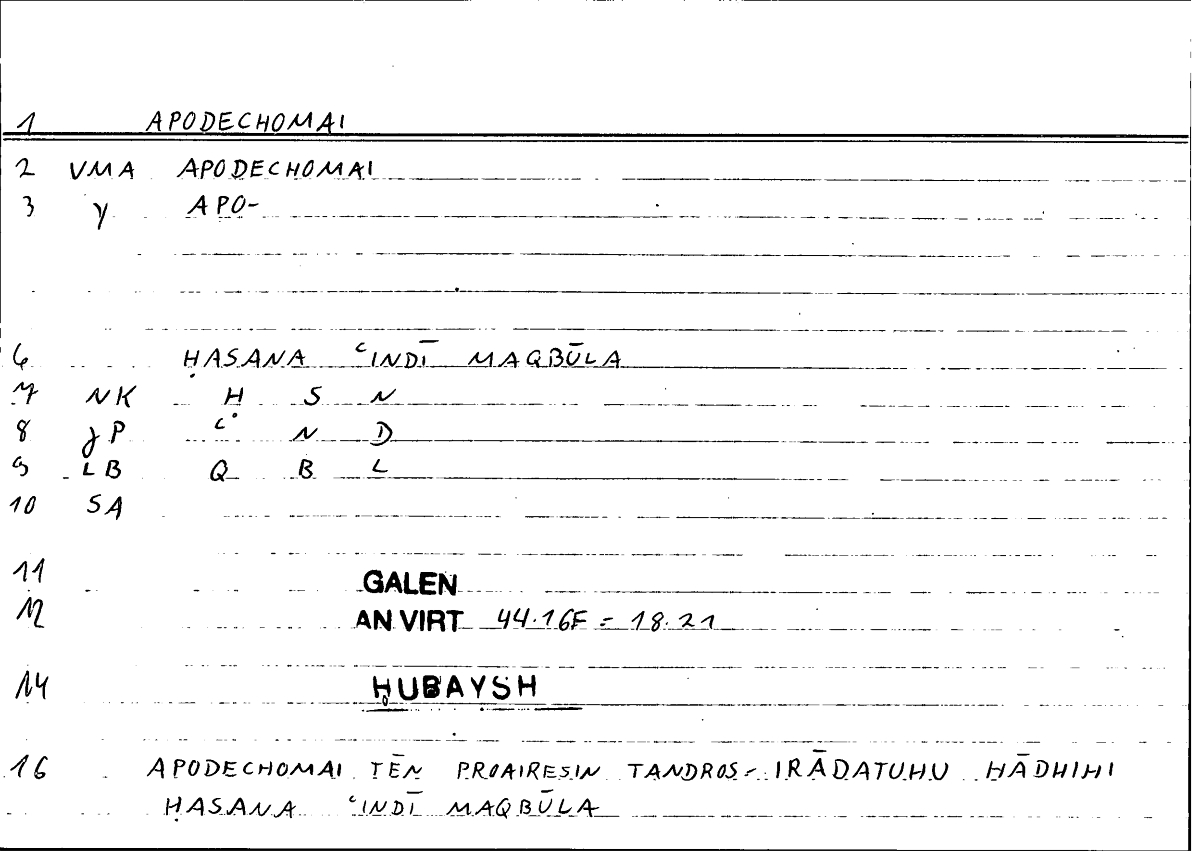 1 APODECHOMAI
2 VMA APODECHOMAI
3 γ APO-
6 ḤASANA ʿINDĪ MAQBŪLA
7 NK Ḥ S N
8 γP ʿ N D
9 LB Q B L
10 SA
11 GALEN
12 AN VIRT 44.16F = 18.21
14 ḤUBAYSH
16 APODECHOMAI TĒN PROAIRESIN TANDROS - IRĀDATUHU HĀDHIHI
ḤASANA ʿINDĪ MAQBŪLA